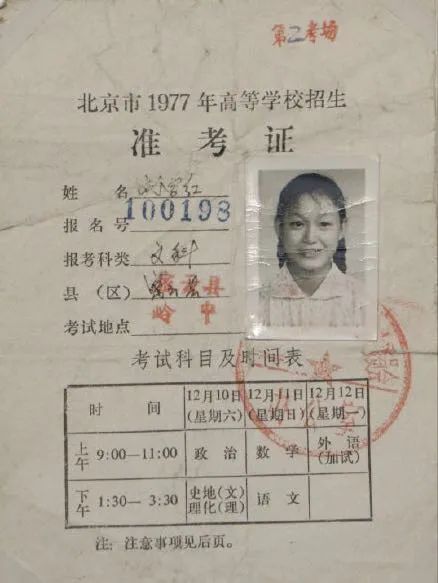 第二考场
北京市1977年高等学校招生
准考证
姓名
报名号 100198
报考科类 文科
县（区） 密云县
考试地点 岭中
考试科目及时间表
时间 12月10日(星期六) 12月11日(星期日) 12月12日(星期一)
上午 9:00—11:00 政治 数学 外语(加试)
下午 1:30—3:30 史地(文)理化(理) 语文
注：注意事项见后页。